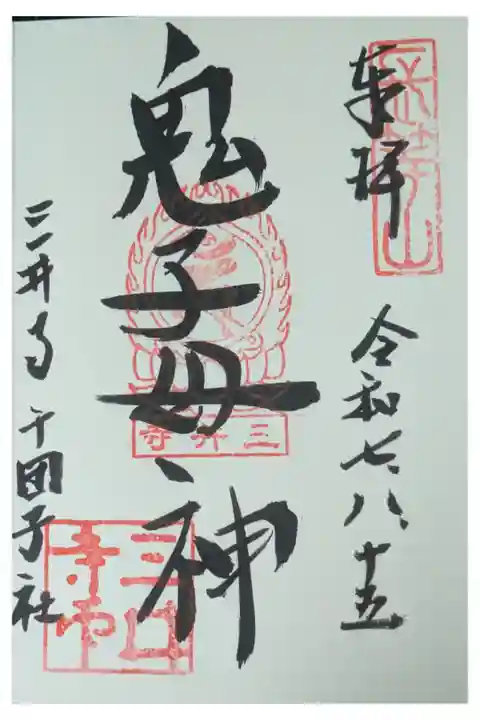 奉拝
長等山
令和七、八、十五
鬼子母神
三井寺
三井寺 千団子社
三井寺印